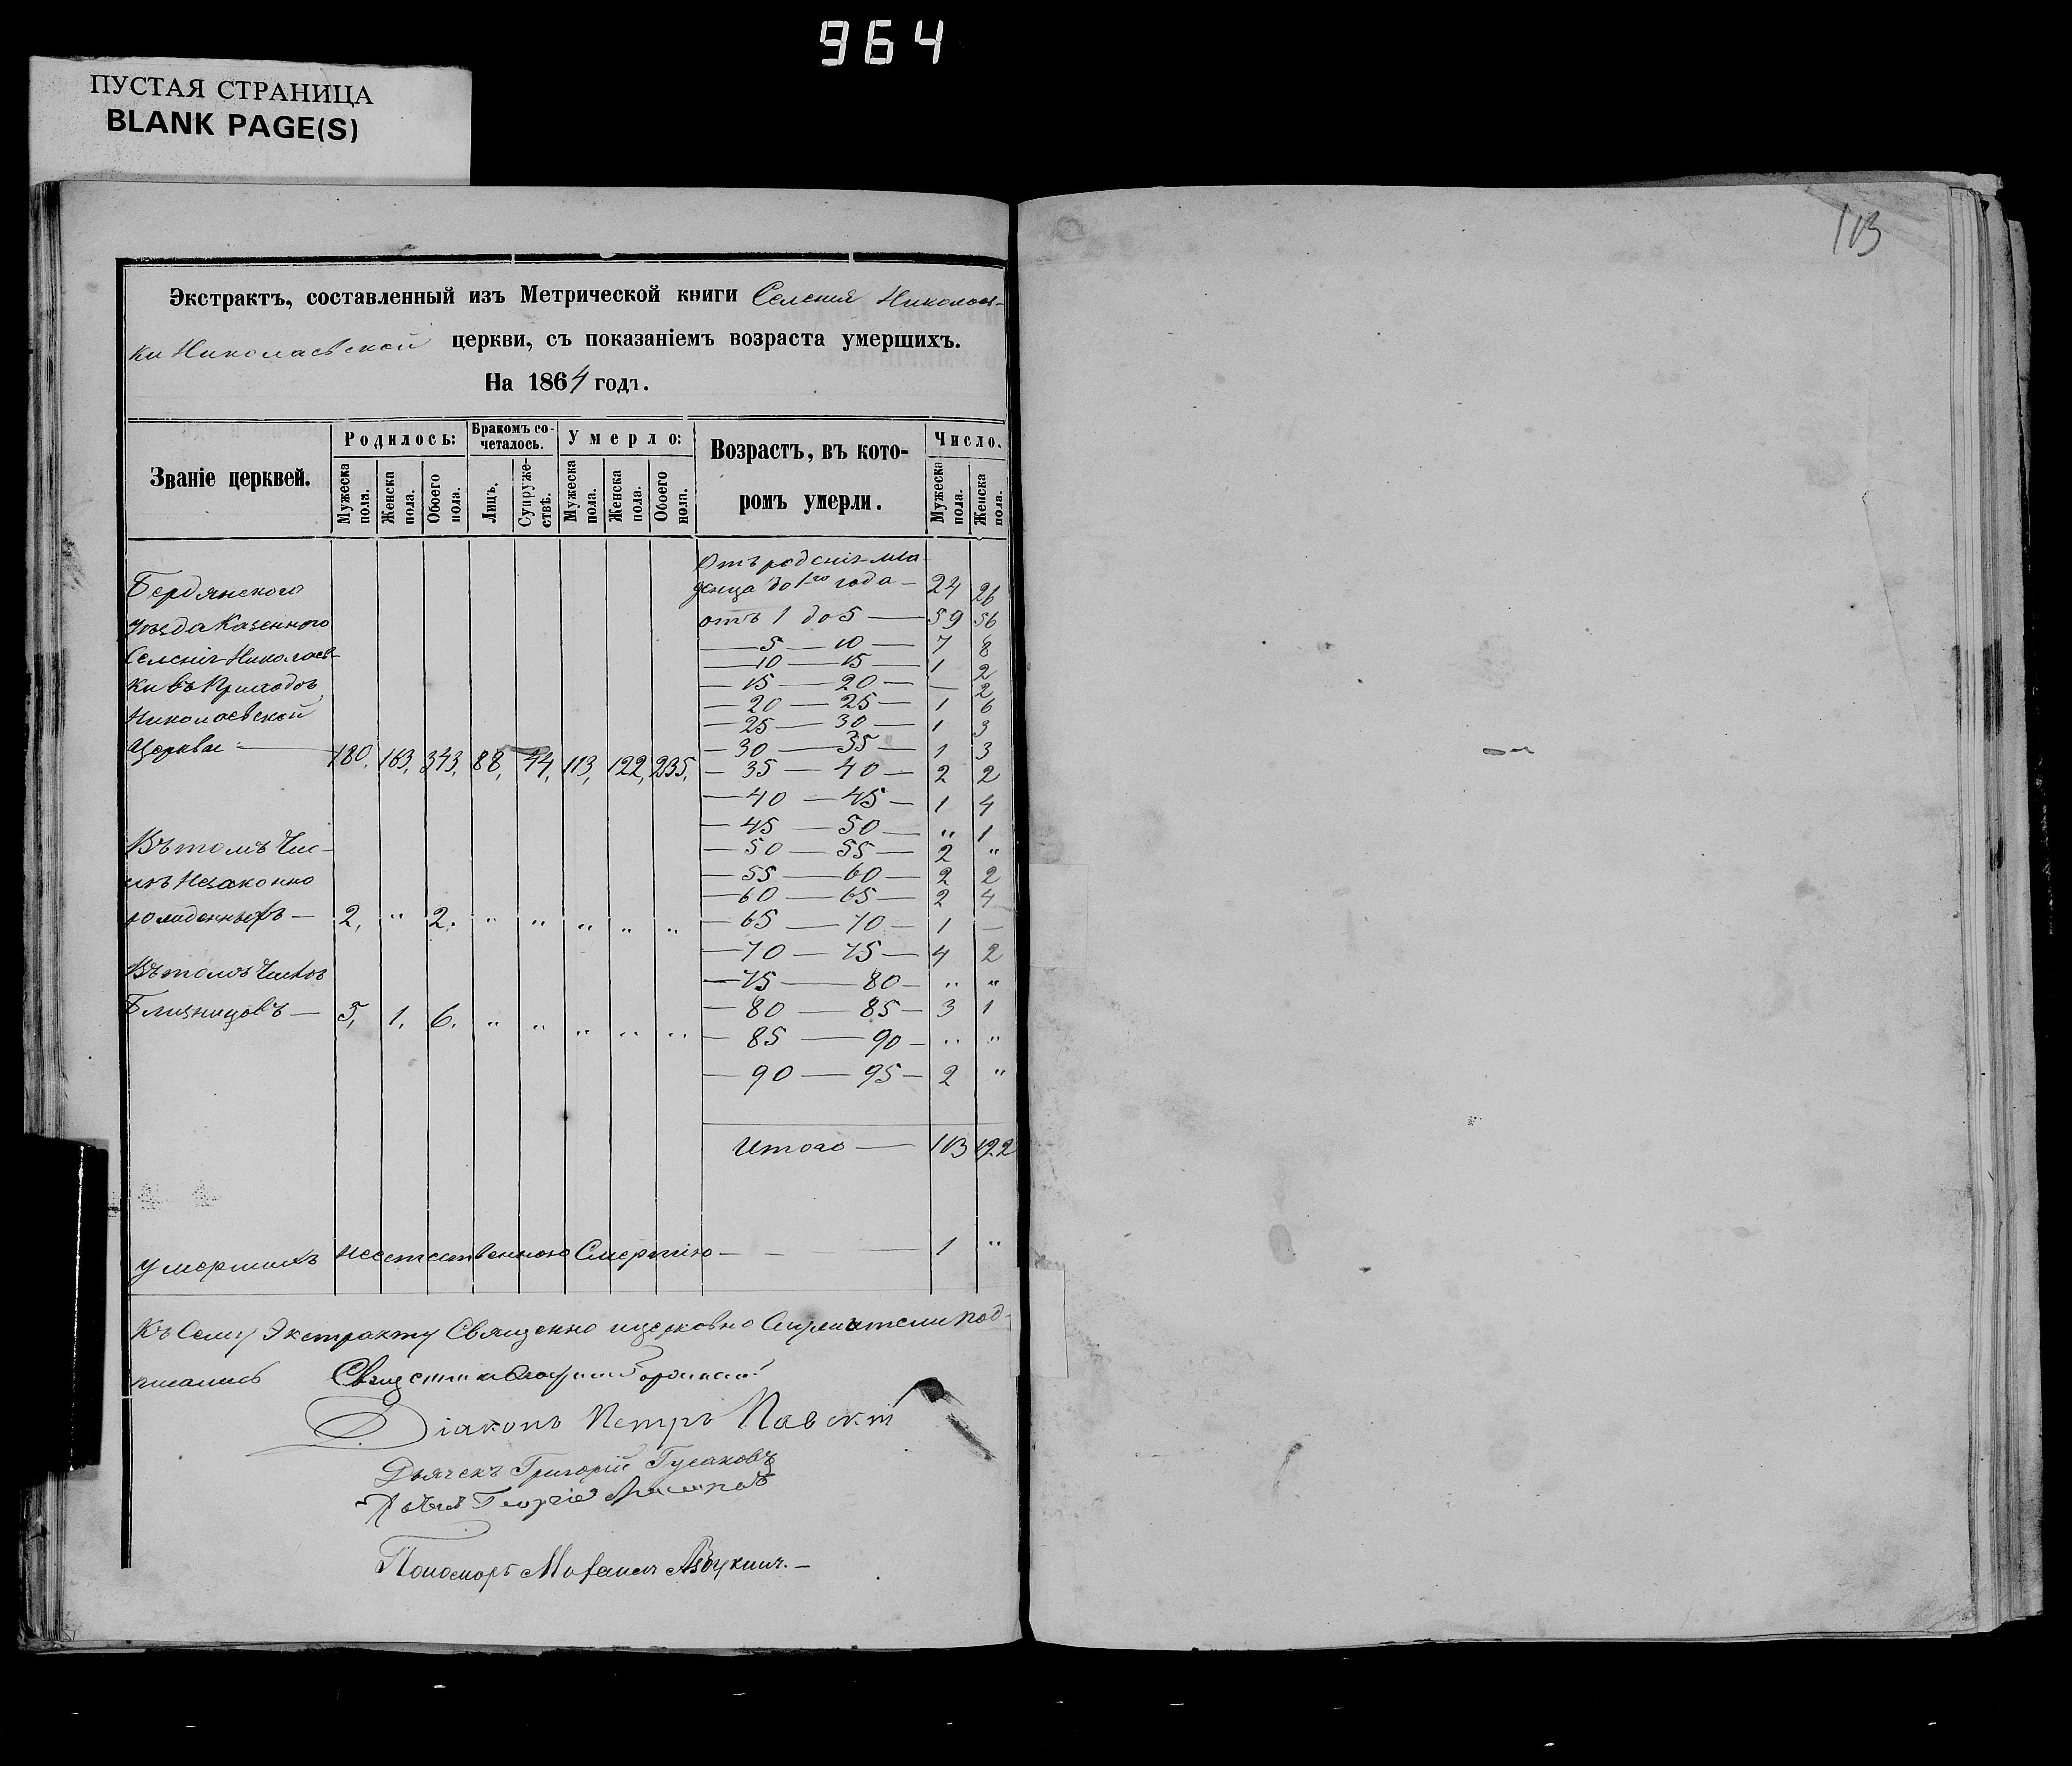 964
ПУСТАЯ СТРАНИЦА
BLANK PAGE(S)
113
Экстрактъ, составленный изъ Метрической книги Селенія Николаев-
ки Николаевской церкви, съ показаніемъ возраста умершихъ.
На 1864 годъ.
Званіе церквей. Родилось: Бракомъ со- четалось. Умерло: Возрастъ, въ кото- ромъ умерли. Число.
Мужеска пола. Женска пола. Обоего пола. Лицъ. Супружествъ. Мужеска пола. Женска пола. Обоего пола. Мужеска пола. Женска пола.
Отъ рожденія мла-
денца до 1го года — 24 26
отъ 1 до 5 — 59 56
— 5 — 10 — 7 8
— 10 — 15 — 1 2
— 15 — 20 — — 2
— 20 — 25 — 1 6
— 25 — 30 — 1 3
— 30 — 35 — 1 3
— 35 — 40 — 2 2
— 40 — 45 — 1 4
— 45 — 50 — " 1
— 50 — 55 — 2 "
— 55 — 60 — 2 2
— 60 — 65 — 2 4
— 65 — 70 — 1 —
— 70 — 75 — 4 2
— 75 — 80 — " "
— 80 — 85 — 3 1
— 85 — 90 — " "
— 90 — 95 — 2 "
Итого — 113 122
Бердянского
уезда Казенного
Селенія Николаев-
ки въ Приходъ
Николаевской
Церкви — 180, 163, 343, 88, 44, 113, 122, 235,
Въ томъ Чис-
лъ Незаконно
рожденныхъ — 2, " 2. " " " " "
Въ томъ Числъ
Близнецовъ — 5, 1, 6. " " " " "
Умершихъ неестественною Смертію — — 1 "
Къ Сему Экстракту Священно и церковно Служители под-
писались Священникъ
Діаконъ Петръ Павскій
Дьячекъ Григорій Гусаковъ
Георгій
Пономарь Азбукинъ. —